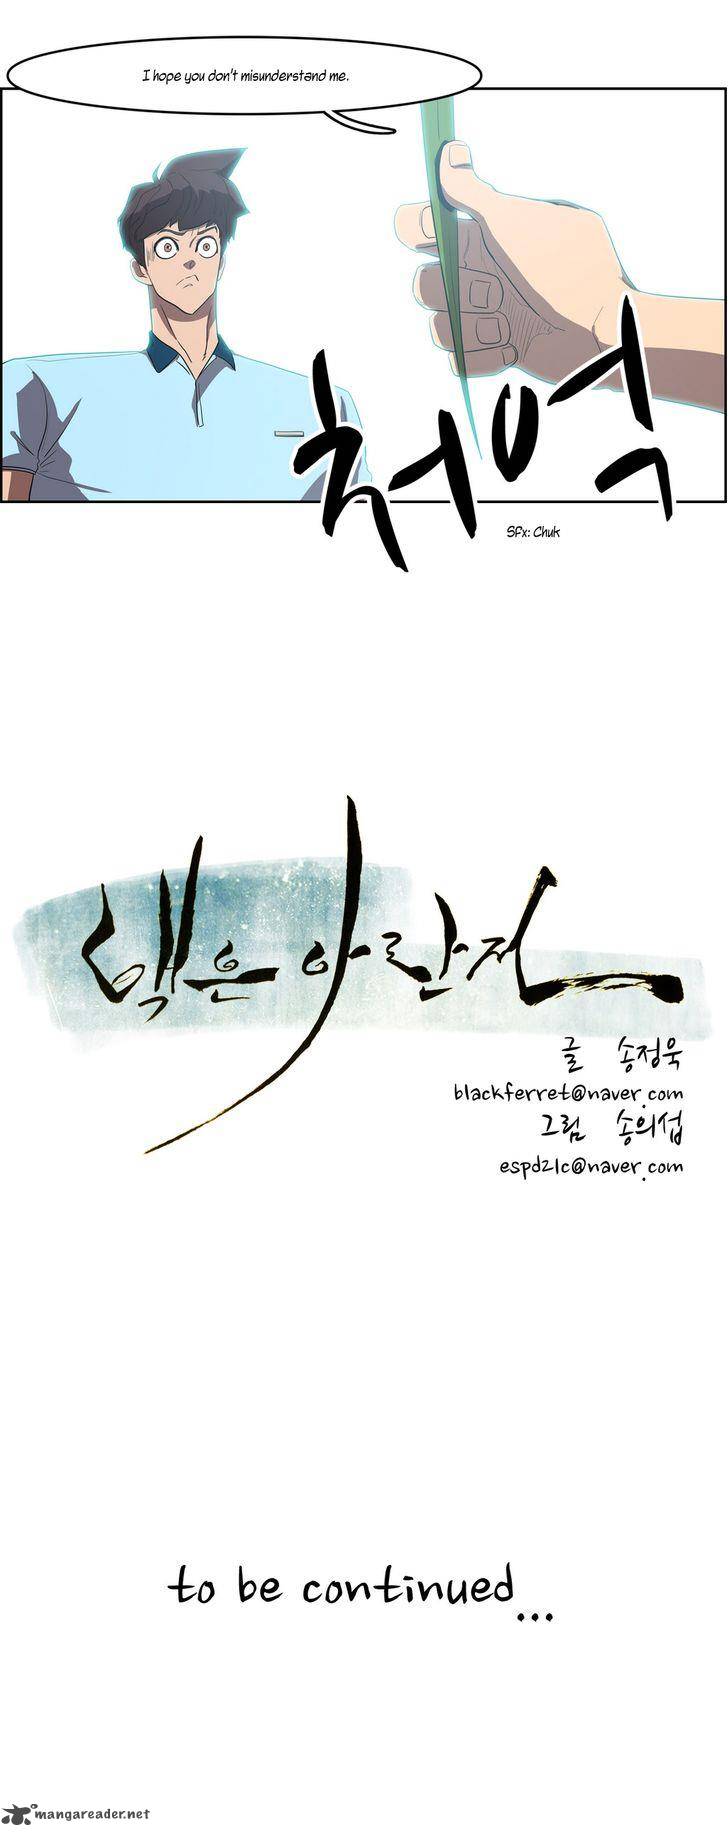 I hope you don't misunderstand me.
처억
Sfx: Chuk
맥은아란전
글 송정욱
blackferret@naver.com
그림 송의섭
espd21c@naver.com
to be continued...
mangareader.net